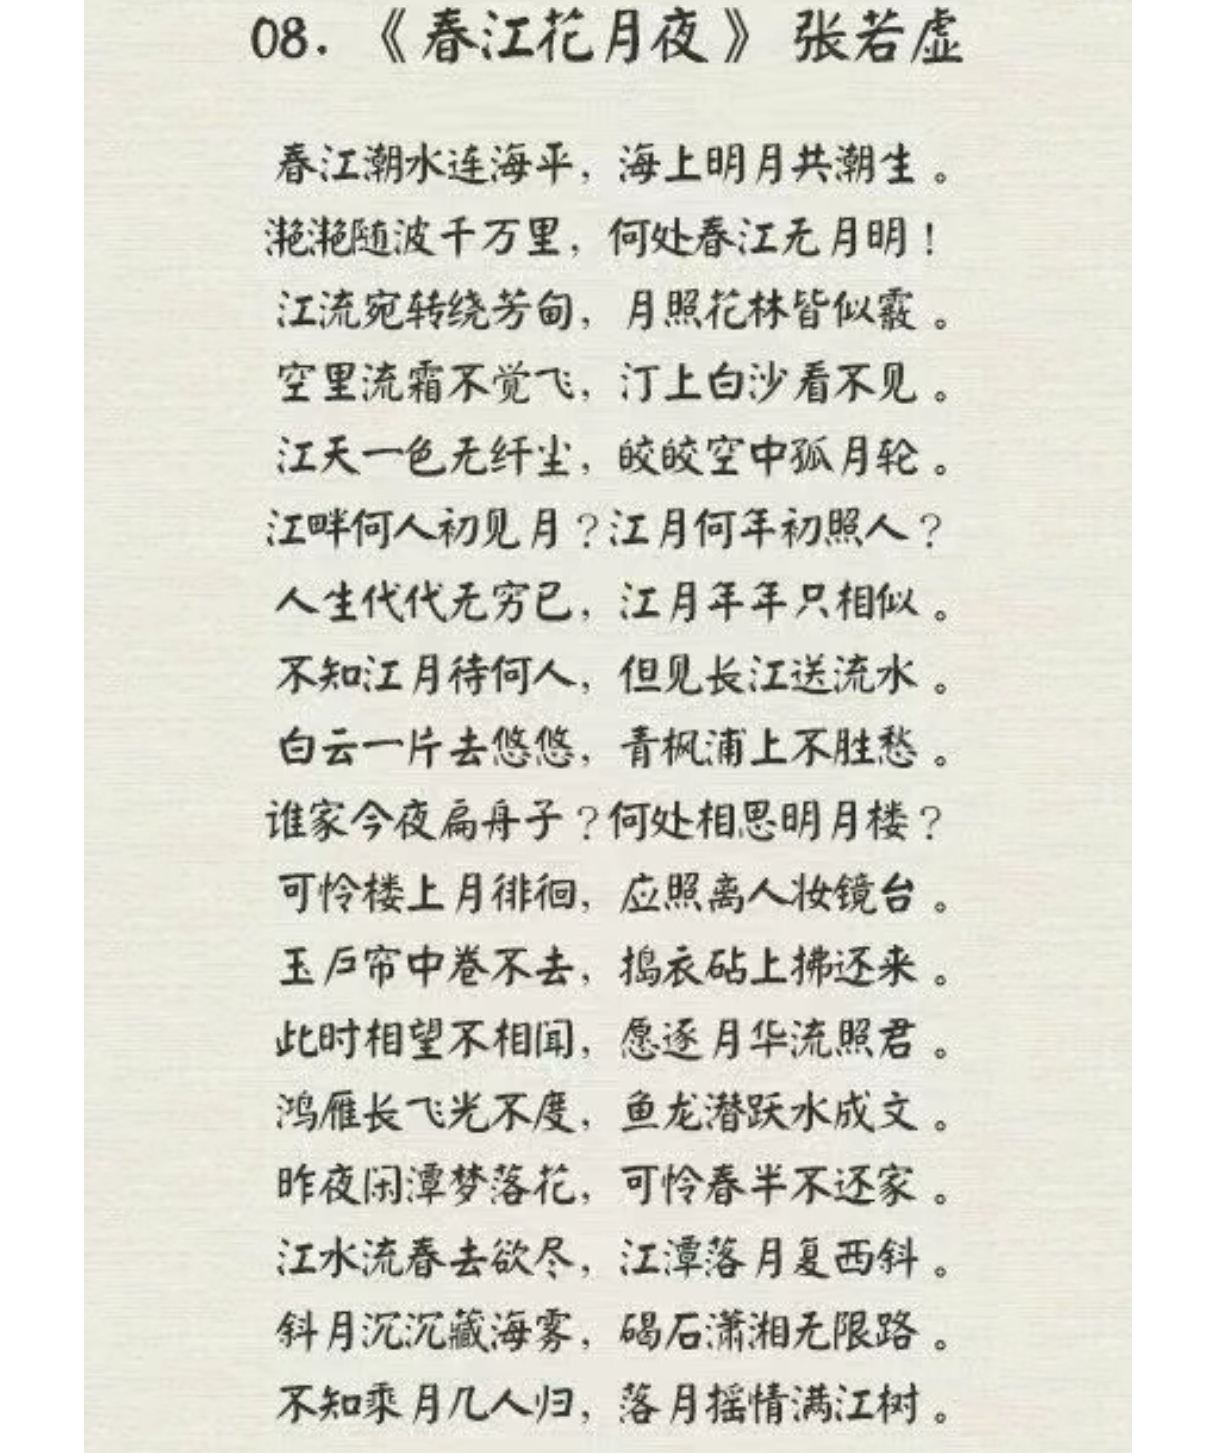 08.《春江花月夜》 张若虚
春江潮水连海平，海上明月共潮生。
滟滟随波千万里，何处春江无月明！
江流宛转绕芳甸，月照花林皆似霰。
空里流霜不觉飞，汀上白沙看不见。
江天一色无纤尘，皎皎空中孤月轮。
江畔何人初见月？江月何年初照人？
人生代代无穷已，江月年年只相似。
不知江月待何人，但见长江送流水。
白云一片去悠悠，青枫浦上不胜愁。
谁家今夜扁舟子？何处相思明月楼？
可怜楼上月徘徊，应照离人妆镜台。
玉户帘中卷不去，捣衣砧上拂还来。
此时相望不相闻，愿逐月华流照君。
鸿雁长飞光不度，鱼龙潜跃水成文。
昨夜闲潭梦落花，可怜春半不还家。
江水流春去欲尽，江潭落月复西斜。
斜月沉沉藏海雾，碣石潇湘无限路。
不知乘月几人归，落月摇情满江树。